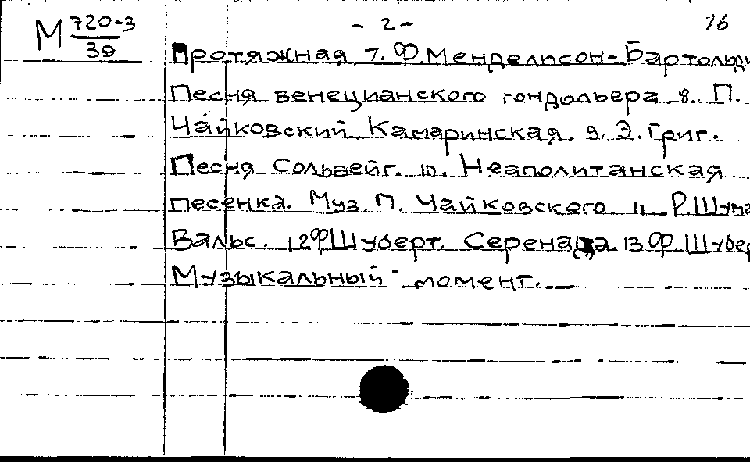 М 720-3 - 2 - 16
39
Протяжная 7. Ф. Мендельсон-Бартольди
Песня венецианского гондольера 8. П.
Чайковский Камаринская. 9. Э. Григ.
Песня Сольвейг. 10. Неаполитанская
песенка. Муз. П. Чайковского 11. Р. Шума
Вальс. 12 Ф Шуберт. Серенада 13 Ф. Шубер
Музыкальный момент.